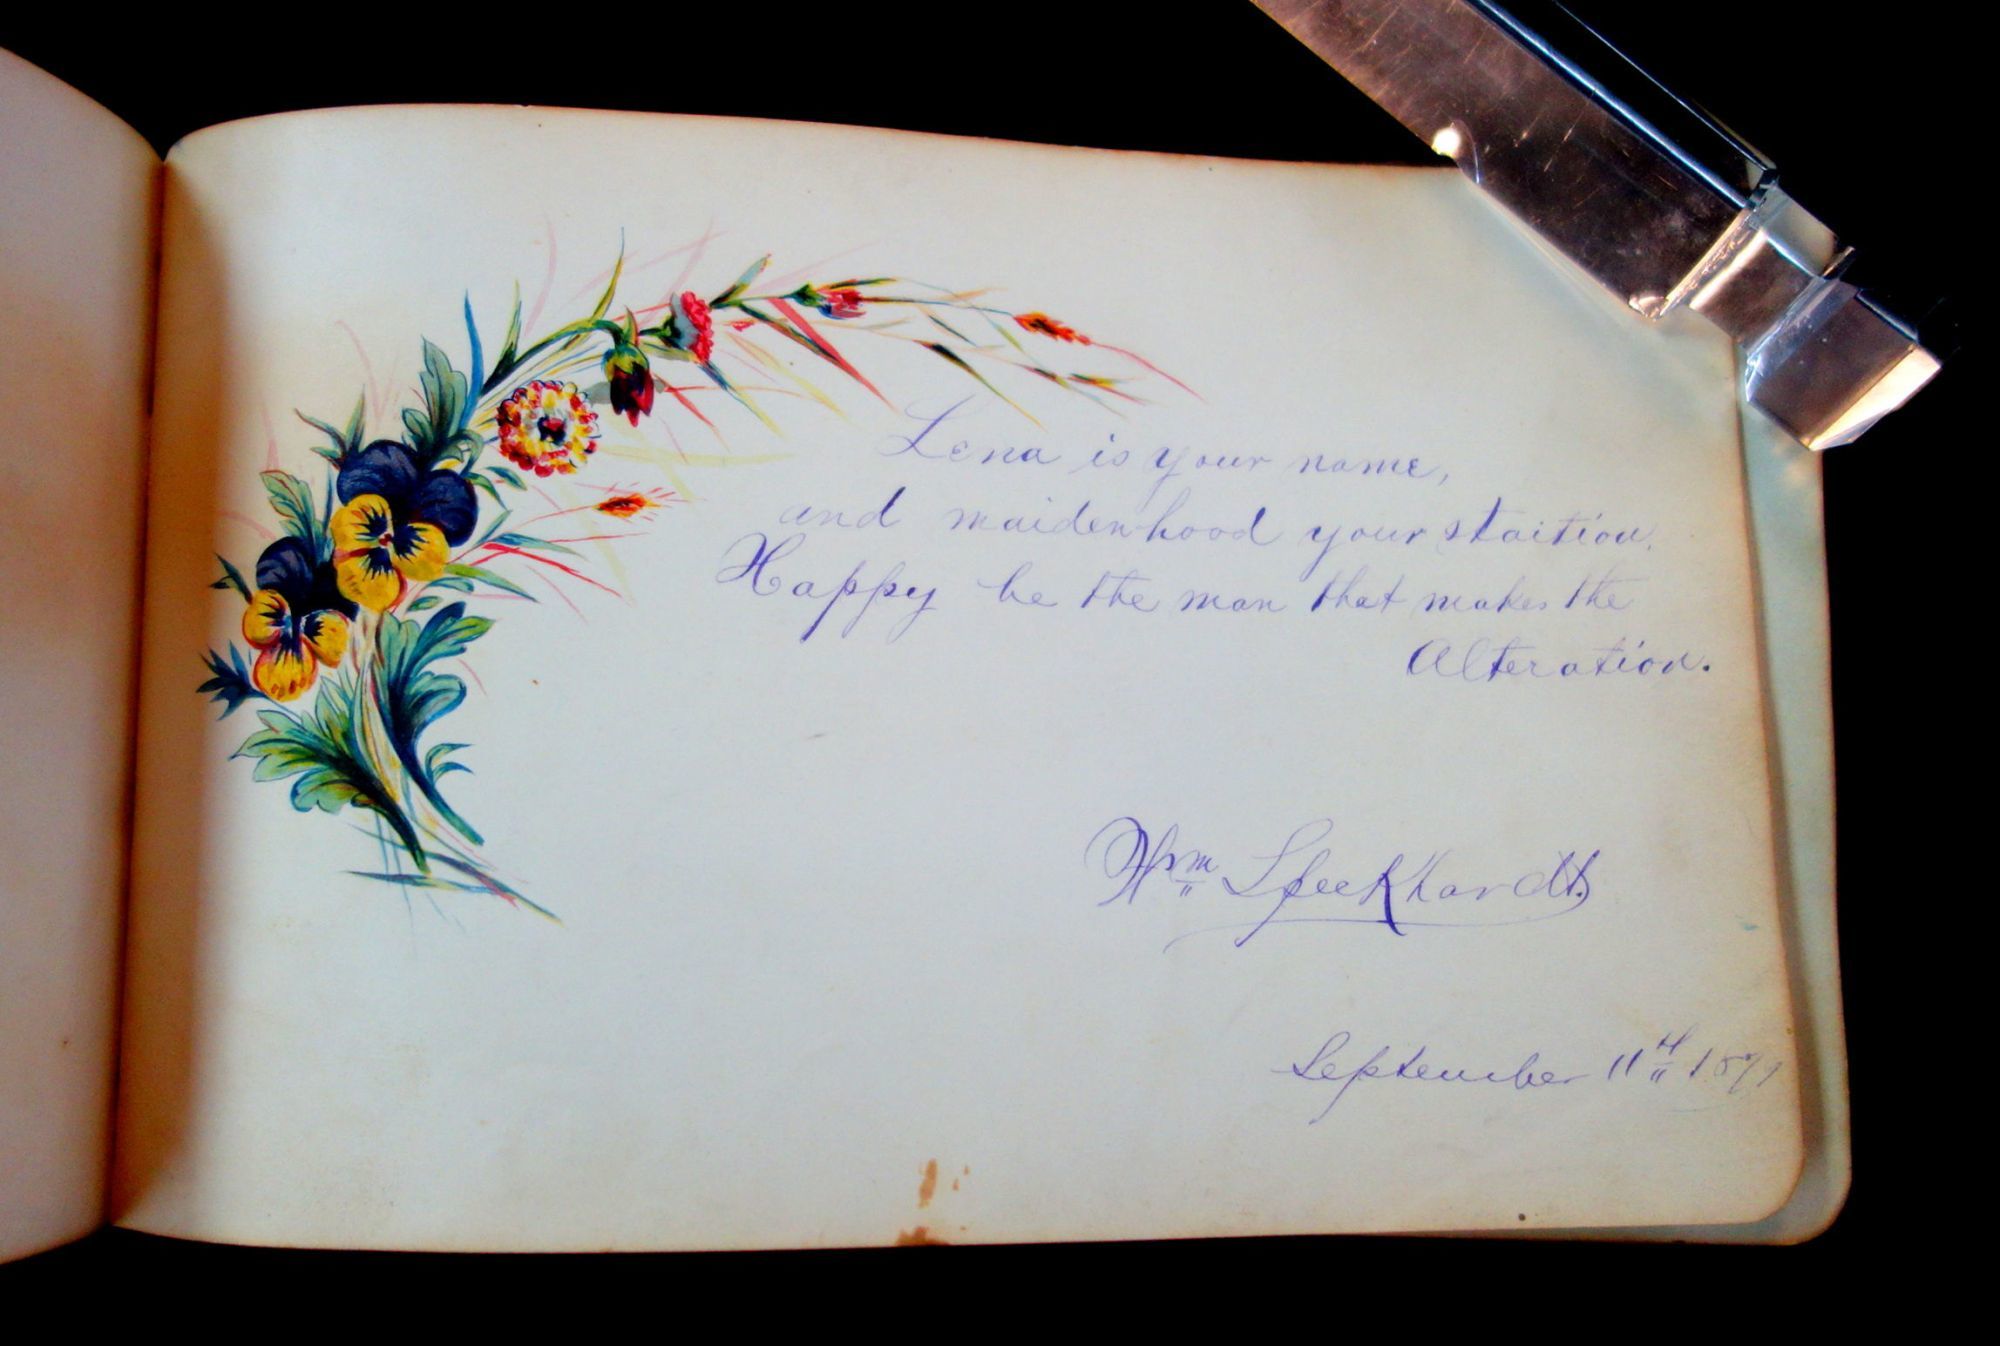 Lena is your name,
and maidenhood your staition.
Happy be the man that makes the
Alteration.
Wm Speckhardt.
September 11th 1879